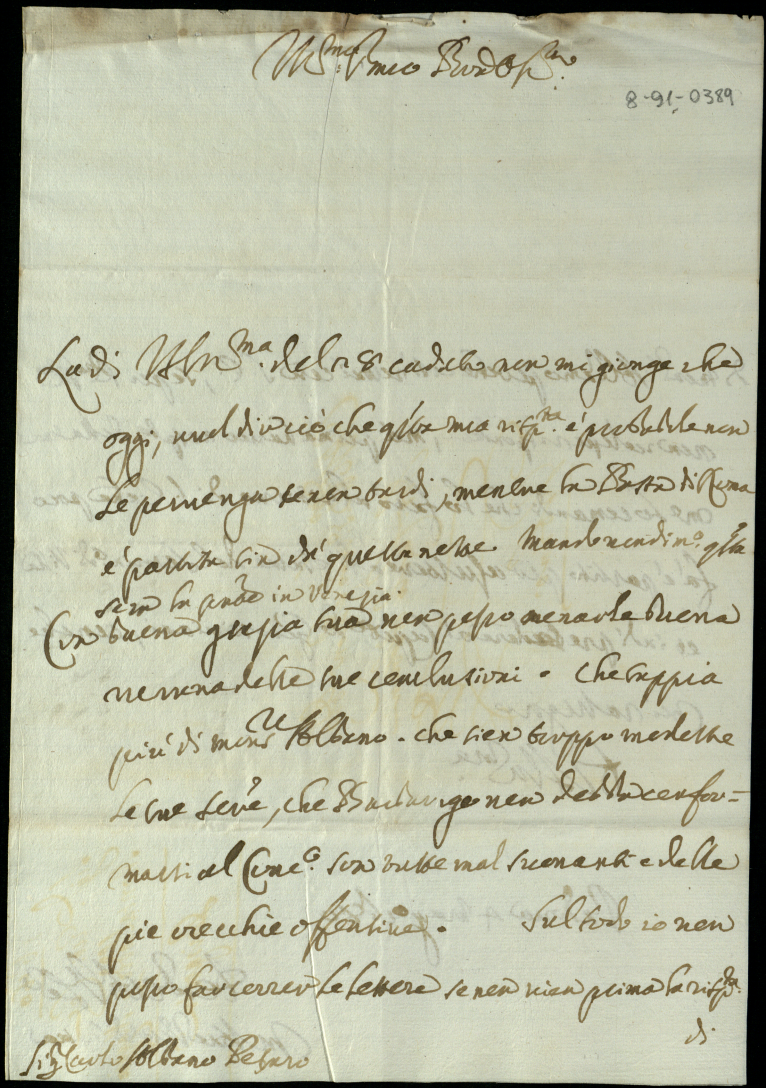 Ill.mo Sig.r mio P.rone Oss.mo
8-91-0389
La di V.S. Ill.ma del 28 caduto non mi gionge che
oggi, vuol dir ciò che q.sta mia risp.ta è probabile non
le pervenga se non tardi, mentre la Posta di Roma
è partita sin da questa notte. Mandonondim.o q.sta
sera la p.nte in Venezia.
Con buona grazia sua non posso menarle buona
nessuna delle sue conclusioni. Che sappia
più di mons.re Olbano. che sien troppo modeste
le sue, che non debba confor=
marsi al Conc.o son tutte mal suonanti e delle
pie orecchie offensive. Sul Sodo io non
posso far correr le lettere se non vien prima la risp.ta
di
Sig. Carlo Olbano Pesaro